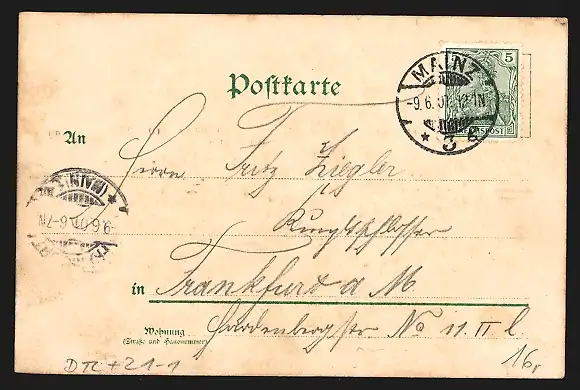 5
REICHSPOST
MAINZ
-9.6.01. 12-1N
* 3 a
Postkarte
An
Herrn Fritz Ziegler
Kunstschlosser
in Frankfurt a M
Wohnung
(Straße und Hausnummer)
Hardenbergstr No 11 II l.
(MAIN)
-9.6.01.6-7N
DTL + 21-1
16,